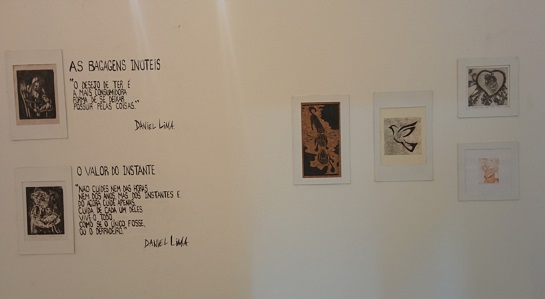 AS BAGAGENS INÚTEIS
"O DESEJO DE TER É
A MAIS CONSUMIDORA
FORMA DE SE DEIXAR
POSSUIR PELAS COISAS."
DANIEL LIMA
O VALOR DO INSTANTE
"NÃO CUIDES NEM DAS HORAS
NEM DOS ANOS MAS DOS INSTANTES E
DO AGORA CUIDE APENAS.
CUIDA DE CADA UM DELES
VIVE O TODO
COMO SE O ÚNICO FOSSE,
OU O DERRADEIRO."
DANIEL LIMA